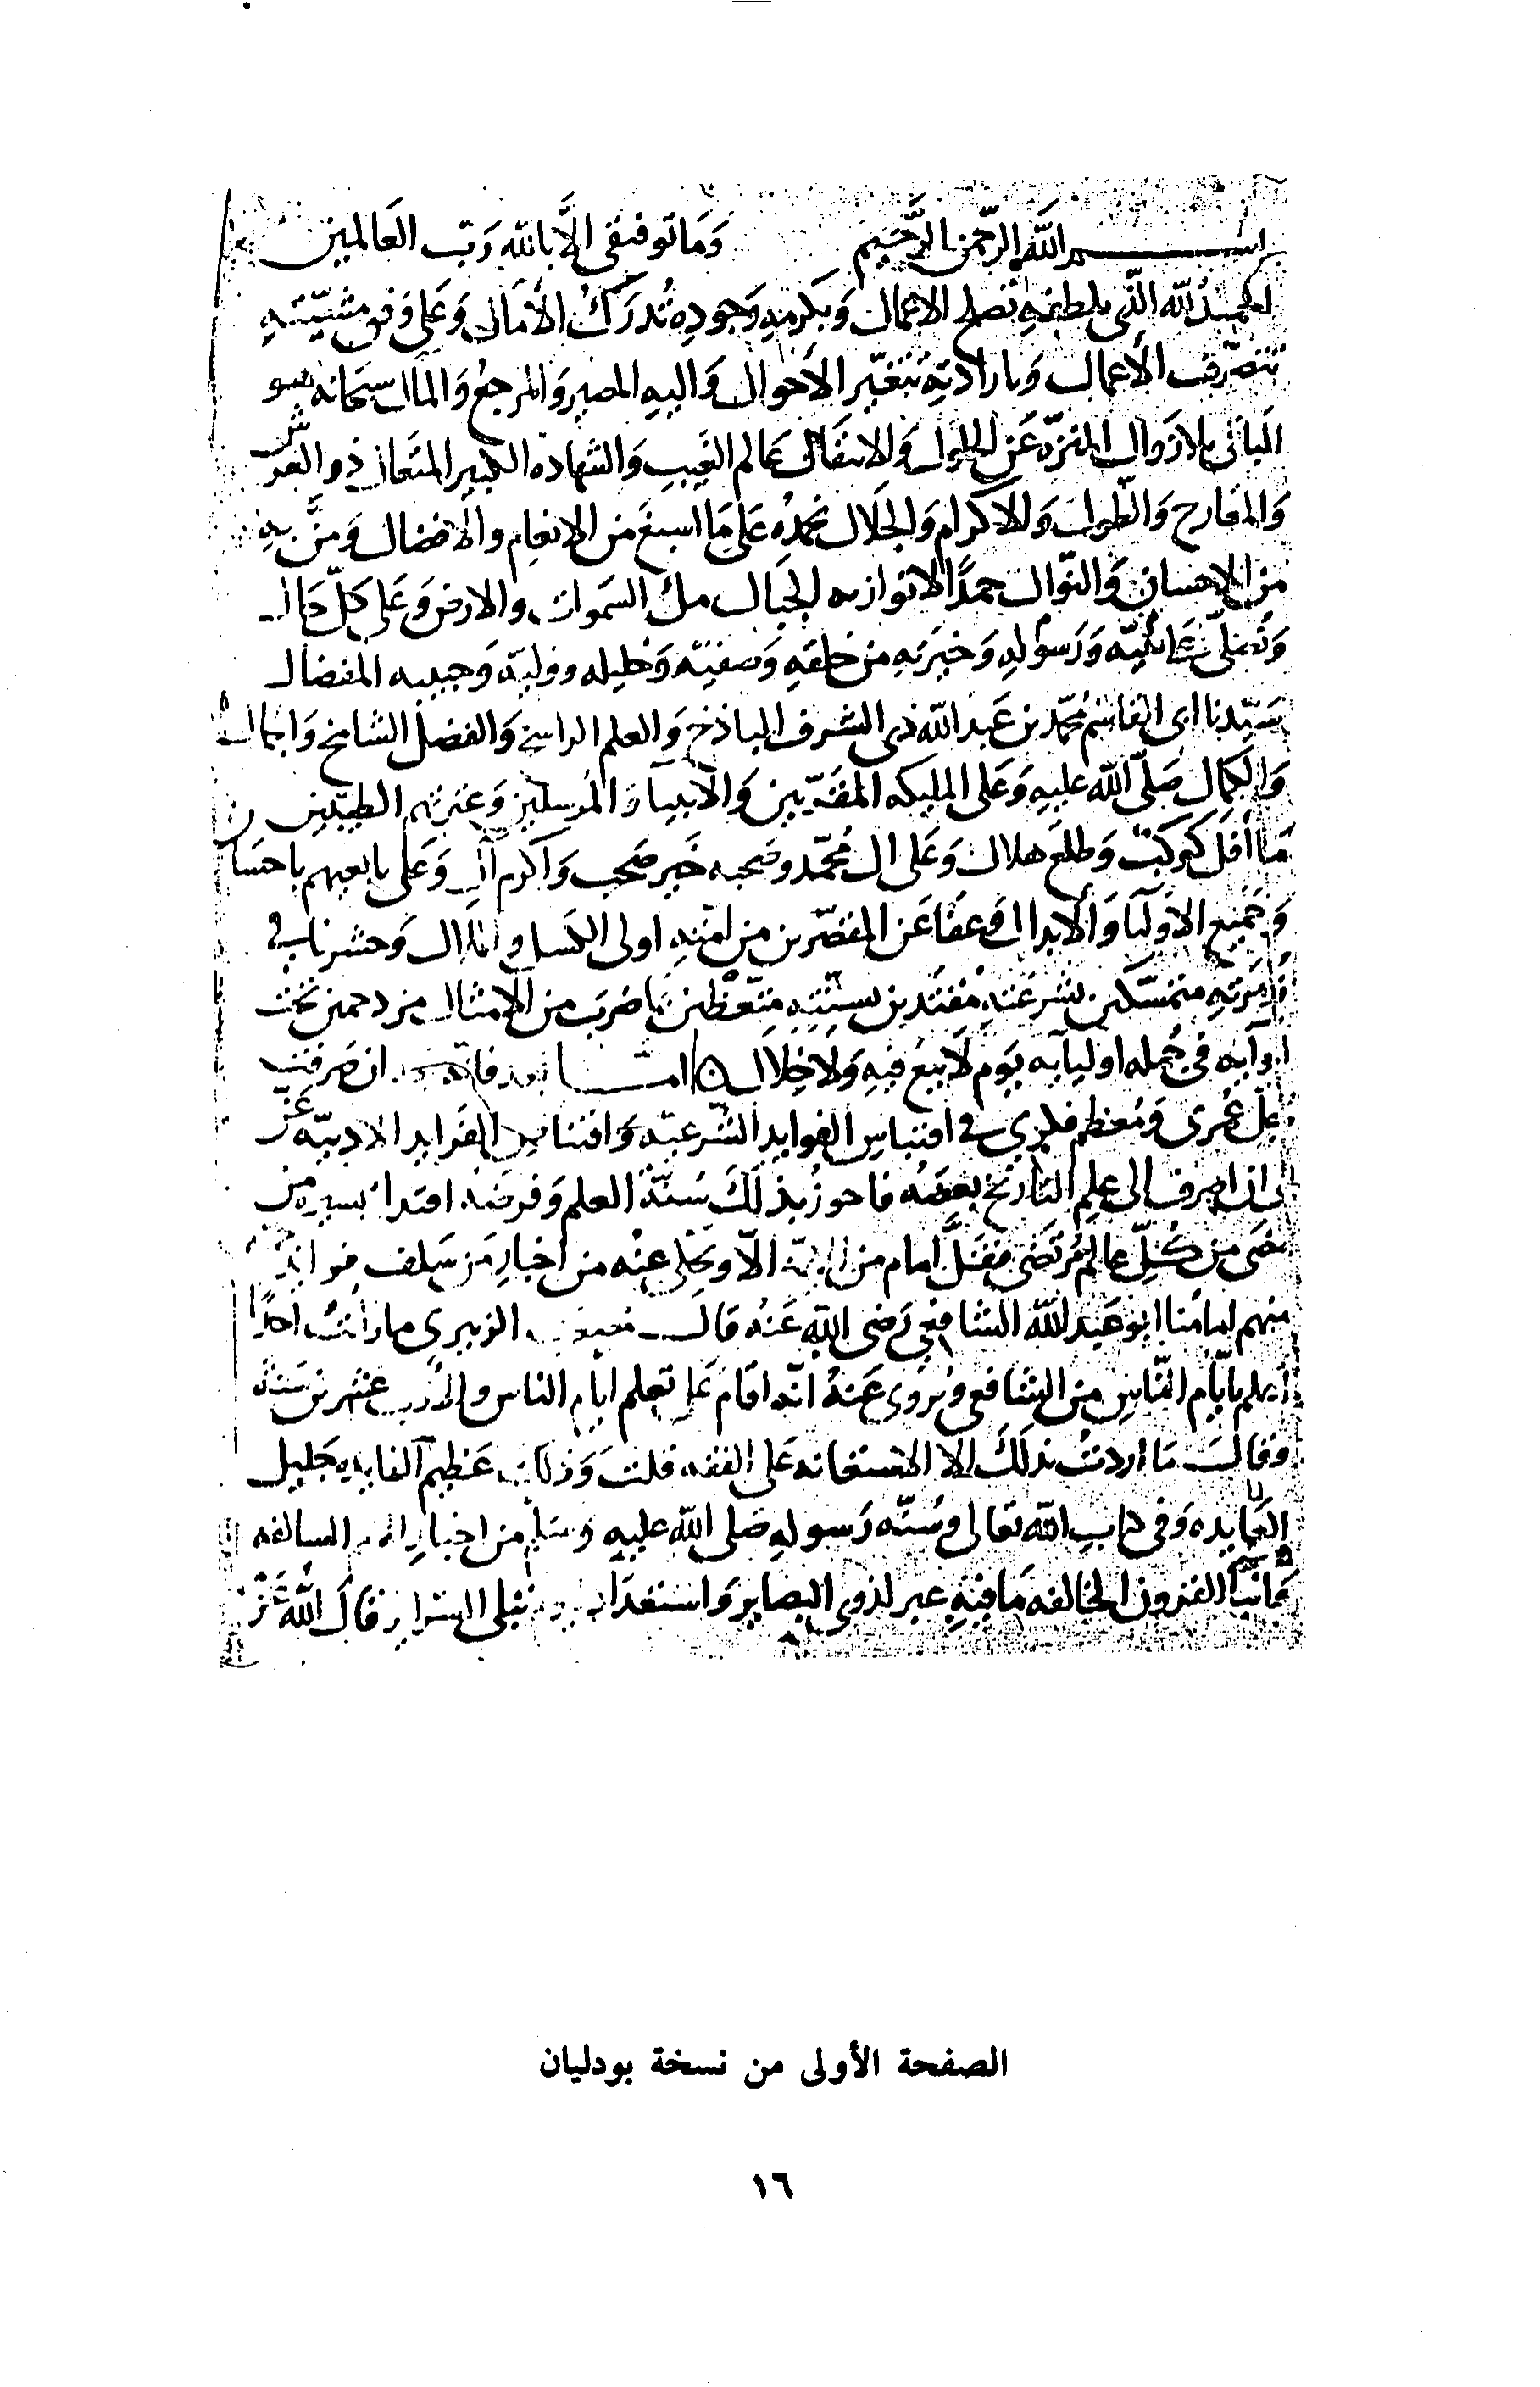 بسم الله الرحمن الرحيم وَمَا توفيقى الَّا بالله رَبّ العَالمين
الحمدُ لله الذى بلطفهِ تصلح الاعمال وَبكرمهِ وَجودِهِ تُدرَكُ الآمال وَعَلى وَفق مشيّته
تتصرّف الأعمال وَبارادتهِ تتغيّر الأحوال وَاليهِ المصير وَالمرجعُ وَالمآل سبحانه هو
الباقى بلا زوال المنزّه عَن الحلول وَالانتقال عالم الغيب وَالشهاده الكبير المتعال ذو العرش
وَالمعارج وَالطول وَالاكرام وَالجلال نحمدُه عَلى مَا اسبغ من الانعام والافضال وَمنَّ به
من الاحسان وَالنوال حمدًا لا توازنه الجبال ملء السموات والارض وَعَلى كلّ حال
وَنصلّى عَلى نبيّه وَرَسُوله وَخيرَته من خلقهِ وَصفيّه وَخليله ووليّه وَحبيبه المفضال
سَيّدنا ابى القاسم محمّد بن عَبد الله ذى الشرف الباذخ وَالعلم الراسخ وَالفضل الشامخ وَالجمال
وَالكمال صَلّى الله عليهِ وَعَلى المليكه المقرّبين وَالأنبياء وَالمُرسلين وَعترتهم الطيبين
مَا أفل كوكبٌ وَطلعَ هلال وَعَلى ال مُحمّد وصَحبه خَير صَحب وَاكرم آل وَعَلى تابعيهم باحسَان
وَجميع الاوليا وَالأبدال وَعفَا عَن المقصّرين من امّتهِ اولى الكسل والملال وَحشرنا فى
زُمرَتهِ متمسّكين بشرعتهِ مقتدين بسنّتهِ متّعظين بما ضرَب من الأمثال مزدحمين تحت
لوآيه فى جُمله اوليآيه يَوم لَا بيعٌ فيهِ وَلَا خِلَال امّا بعد فانّه ان صرفت
جلّ عُمرى وَمُعظم فكرى فى اقتباس الفوايد الشّرعيّه وَاقتناص الفرايد الادبيّه عَنَّ
لى ان اصرف الى علم التاريخ بعضه فاحوز بذلكَ سُنّة العلم وَفرضَه اقتداءً بسيره من
مضى من كُلّ عالمٍ مُرتضى فقلَّ امام من الايمّة الّا ويُحكى عنهُ من اخبارِ مَن سَلف فوايد
منهم امامُنا ابو عَبد الله الشافعى رَضى الله عَنهُ قال مصعب الزبيرى ما رأيتُ احدًا
اعلم بايّام النّاس من الشافعى وَيُروى عَنهُ انّه اقام عَلى تعلم ايام الناس والادب عشرين سَنة
وقال مَا اردتُ بذلكَ الا الاستعانه عَلى الفقه قلت وَذلك عَظيم الفايده جَليل
العَايده وَفى كتاب الله تعالى وَسُنّه رَسوله صَلى الله عليهِ وَسَلم من اخبار الامم السالفه
وَانبآ القرون الخالفه مَا فيهِ عبر لذوى البصاير وَاستعداد ليوم تبلى السراير قالَ الله عَزّ
الصفحة الأولى من نسخة بودليان
١٦